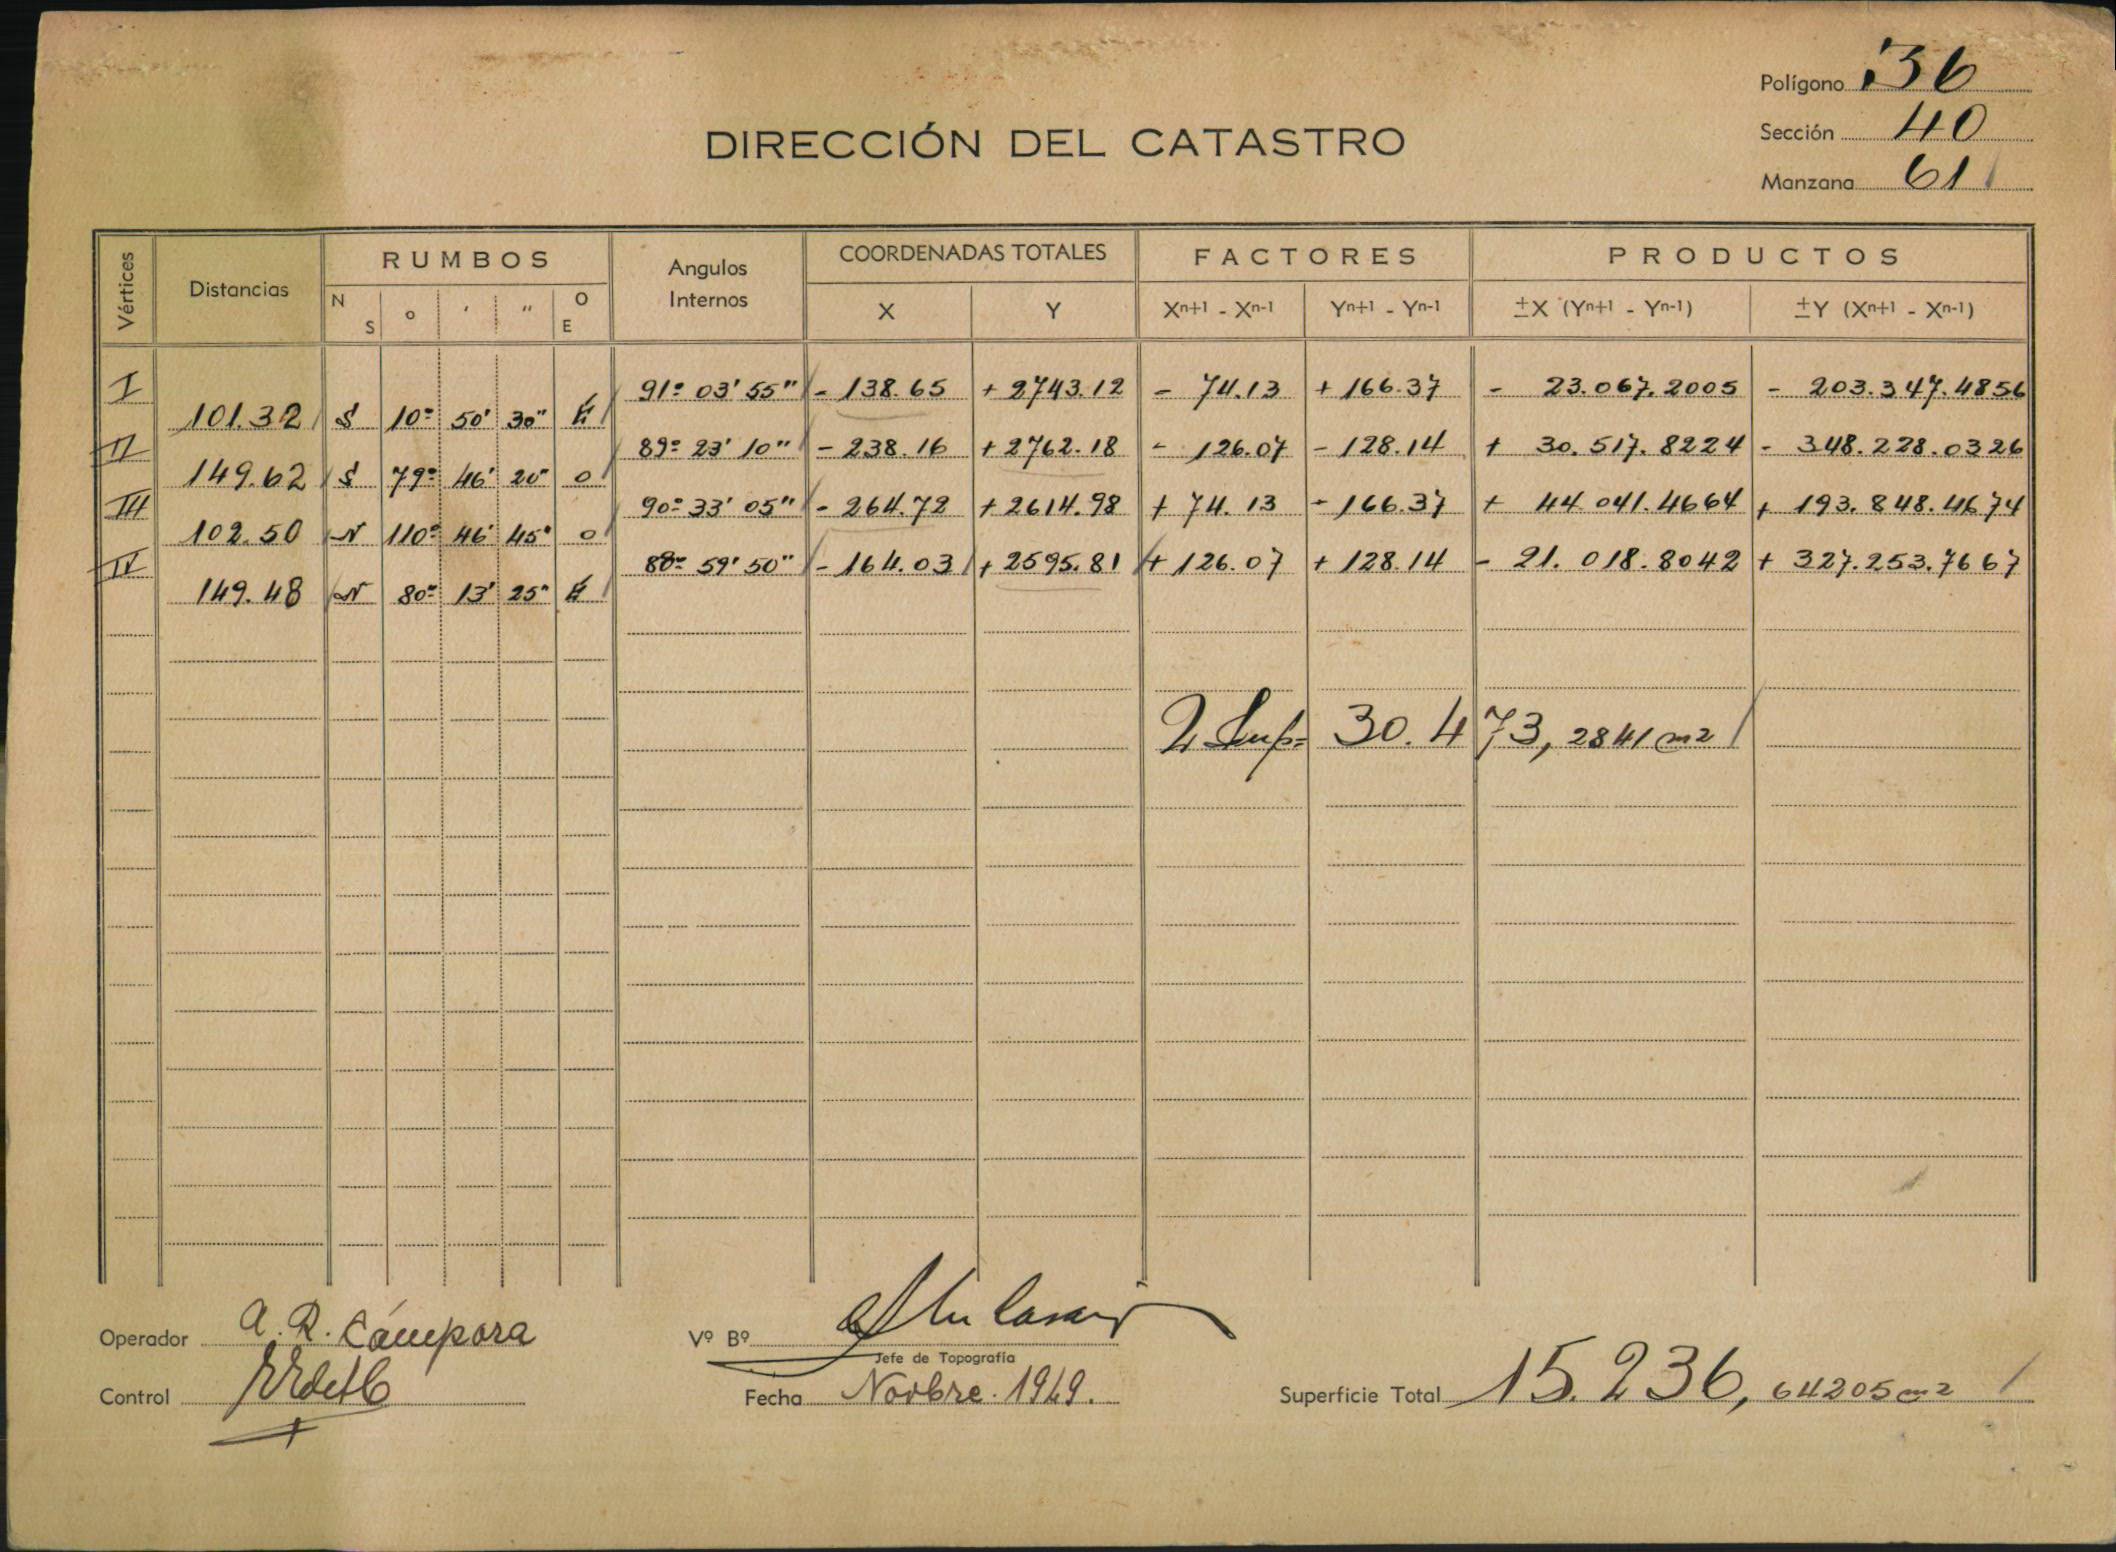 Polígono 36
DIRECCIÓN DEL CATASTRO
Sección 40
Manzana 61
Vértices Distancias RUMBOS Angulos Internos COORDENADAS TOTALES FACTORES PRODUCTOS
N S o ' " O E X Y Xn+1 - Xn-1 Yn+1 - Yn-1 ±X (Yn+1 - Yn-1) ±Y (Xn+1 - Xn-1)
I 91º 03' 55" - 138.65 + 2743.12 - 74.13 + 166.37 - 23.067.2005 - 203.347.4856
101.32 S 10º 50' 30" E
II 89º 23' 10" - 238.16 + 2762.18 - 126.07 - 128.14 + 30.517.8224 - 348.228.0326
149.62 S 79º 46' 20" O
III 90º 33' 05" - 264.72 + 2614.98 + 74.13 - 166.37 + 44.041.4664 + 193.848.4674
102.50 N 110º 46' 45" O
IV 88º 59' 50" - 164.03 + 2595.81 + 126.07 + 128.14 - 21.018.8042 + 327.253.7667
149.48 N 80º 13' 25" E
2 Sup= 30.473,2841 m2
Operador A. R. Cámpora
Vº Bº
Jefe de Topografía
Control
Fecha Novbre. 1949.
Superficie Total 15.236,64205 m2